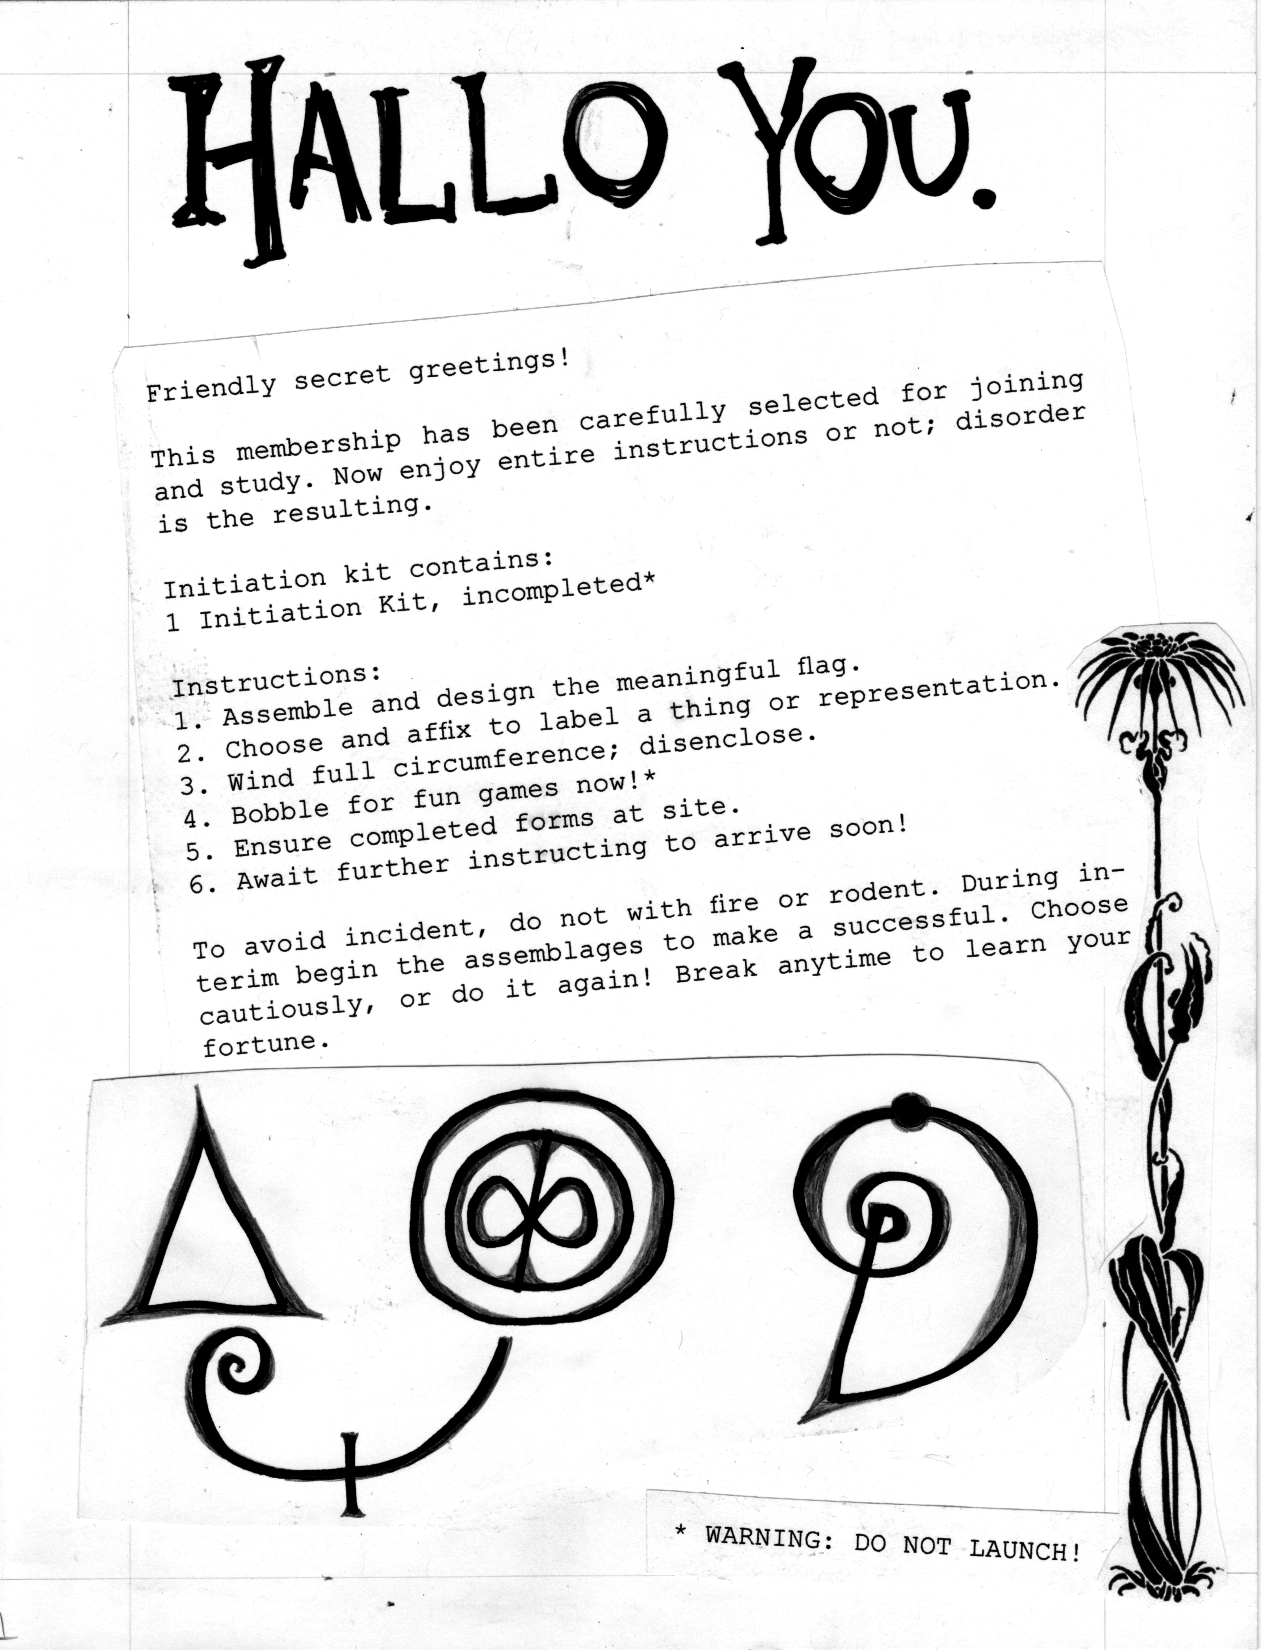 HALLO YOU.
Friendly secret greetings!
This membership has been carefully selected for joining
and study. Now enjoy entire instructions or not; disorder
is the resulting.
Initiation kit contains:
1 Initiation Kit, incompleted*
Instructions:
1. Assemble and design the meaningful flag.
2. Choose and affix to label a thing or representation.
3. Wind full circumference; disenclose.
4. Bobble for fun games now!*
5. Ensure completed forms at site.
6. Await further instructing to arrive soon!
To avoid incident, do not with fire or rodent. During in-
terim begin the assemblages to make a successful. Choose
cautiously, or do it again! Break anytime to learn your
fortune.
* WARNING: DO NOT LAUNCH!